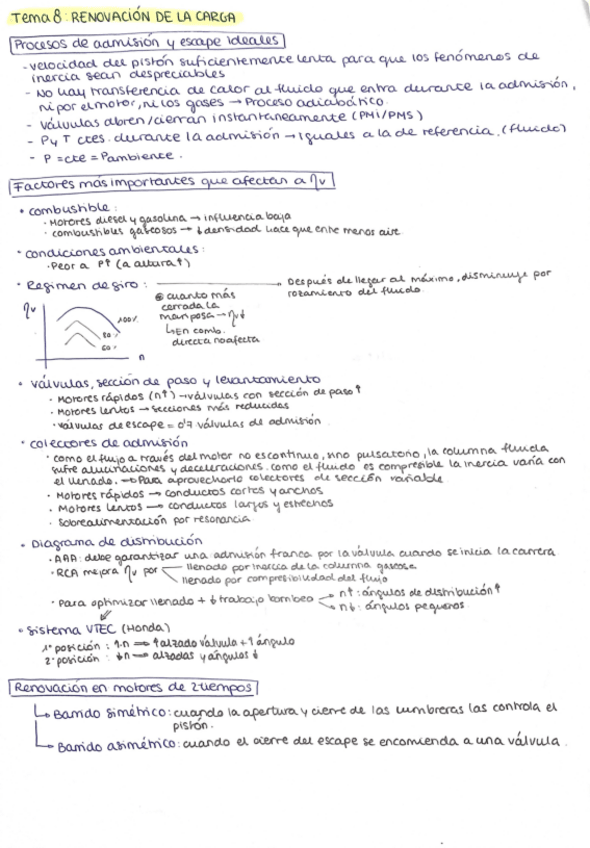 Tema 8: RENOVACIÓN DE LA CARGA
Procesos de admisión y escape ideales
- velocidad del pistón suficientemente lenta para que los fenómenos de
inercia sean despreciables
- No hay transferencia de calor al fluido que entra durante la admisión,
ni por el motor, ni los gases → Proceso adiabático.
- Válvulas abren/cierran instantaneamente (PMI/PMS)
- P y T ctes. durante la admisión → iguales a la de referencia. (fluido)
- P = cte = Pambiente.
Factores más importantes que afectan a ηv
• combustible:
· Motores diesel y gasolina → influencia baja
· combustibles gaseosos → ↓ densidad hace que entre menos aire
• condiciones ambientales:
· Peor a P↑ (a altura↑)
• Regimen de giro: → Después de llegar al máximo, disminuye por
rozamiento del fluido.
cuanto más
cerrada la
mariposa → ηv↓
↳ En comb.
directa no afecta
ηv
100%
80%
60%
n
• válvulas, sección de paso y levantamiento
· Motores rápidos (n↑) → válvulas con sección de paso↑
· Motores lentos → secciones más reducidas
· válvulas de escape = 0'7 válvulas de admisión.
• colectores de admisión
· como el flujo a través del motor no es continuo, sino pulsatorio, la columna fluida
sufre aceleraciones y deceleraciones. como el fluido es compresible la inercia varía con
el llenado. → Para aprovecharlo colectores de sección variable.
· Motores rápidos → conductos cortos y anchos
· Motores lentos → conductos largos y estrechos
· Sobrealimentación por resonancia
• Diagrama de distribución
· AAA: debe garantizar una admisión franca por la válvula cuando se inicia la carrera
· RCA mejora ηv por llenado por inercia de la columna gaseosa.
llenado por compresibilidad del flujo
· Para optimizar llenado + ↓ trabajo bombeo → n↑: ángulos de distribución↑
→ n↓: ángulos pequeños
• Sistema VTEC (Honda)
1ª posición: ↑n ⇒ ↑ alzado válvula + ↑ ángulo
2ª posición: ↓n ⇒ alzadas y ángulos ↓
Renovación en motores de 2 tiempos
↳ Barrido simétrico: cuando la apertura y cierre de las lumbreras las controla el
pistón.
↳ Barrido asimétrico: cuando el cierre del escape se encomienda a una válvula.